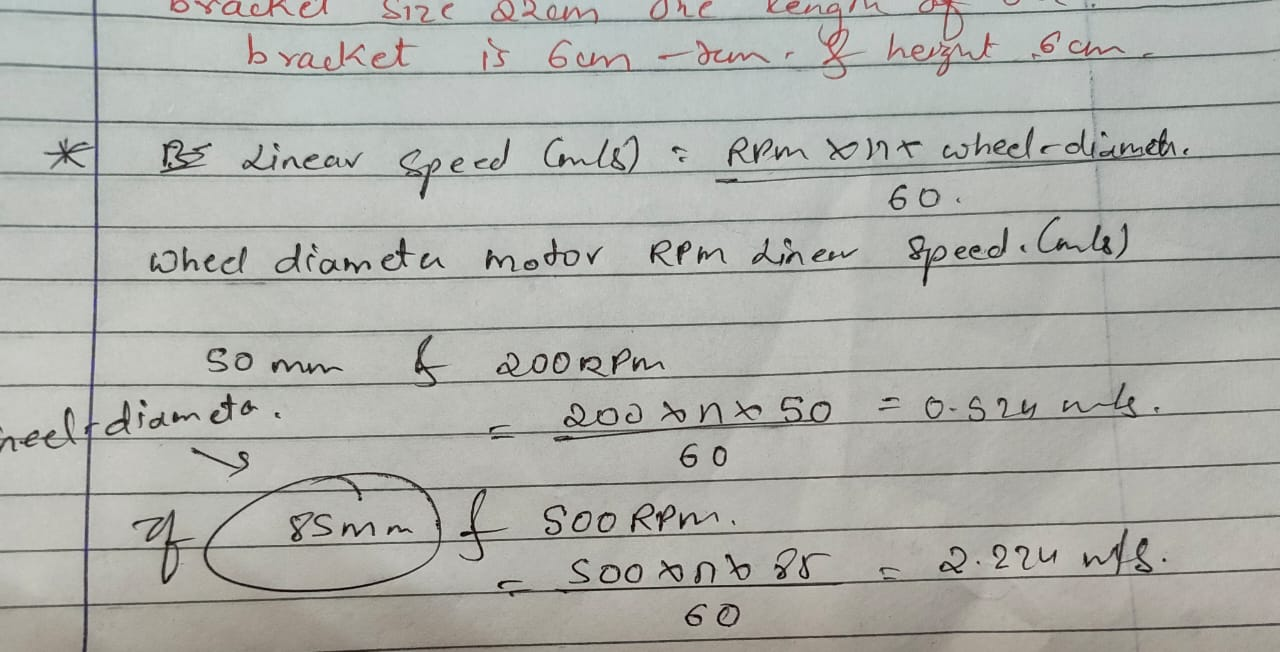 bracket size 22cm the length of
bracket is 6cm - 7cm. & height 6cm.
* Linear Speed (m/s) = RPM × π × wheel-diameter.
60.
wheel diameter motor RPM Linear Speed. (m/s)
50 mm & 200 RPM
heel-diameter.
= 200 × π × 50 = 0.524 m/s.
60
If 85mm & 500 RPM.
= 500 × π × 85 = 2.224 m/s.
60